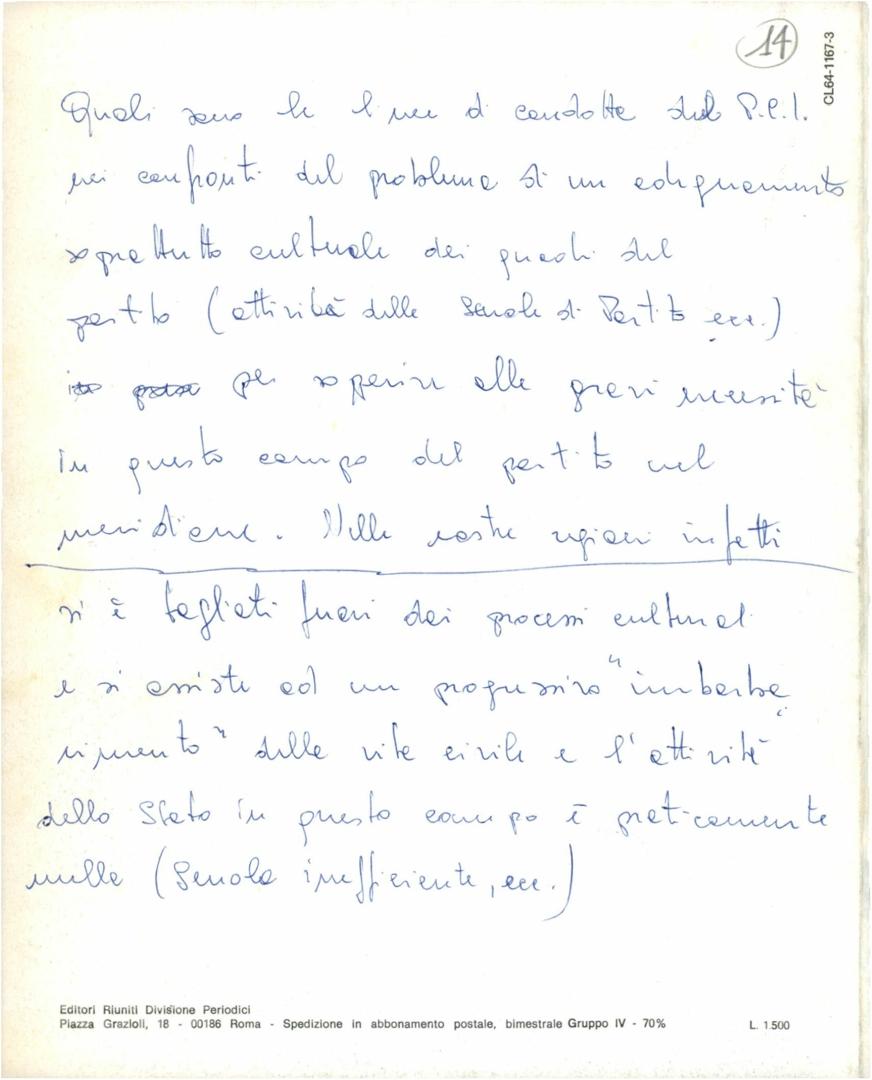 14
CL64-1167-3
Quali sono le linee di condotta del P.C.I.
nei confronti del problema di un adeguamento
soprattutto culturale dei quadri del
partito (attività delle Scuole di Partito ecc.)
per sopperire alle gravi necessità
in questo campo del partito nel
meridione. Nelle nostre regioni infatti
si è tagliati fuori dai processi culturali
e si assiste ad un progressivo "imbarba
rimento" della vita civile e l'attività
dello Stato in questo campo è praticamente
nulla (Scuola inefficiente, ecc.)
Editori Riuniti Divisione Periodici
Piazza Grazioli, 18 - 00186 Roma - Spedizione in abbonamento postale, bimestrale Gruppo IV - 70% L. 1.500